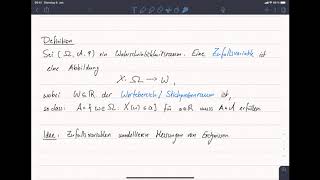 Definition
Sei (Ω, A, P) ein Wahrscheinlichkeitsraum. Eine Zufallsvariable ist
eine Abbildung
X: Ω → W,
wobei W⊆ℝ der Wertebereich / Stichprobenraum ist,
sodass: A = {ω∈Ω: X(ω)≤a} für a∈ℝ muss A∈A erfüllen
Idee: Zufallsvariablen modellieren Messungen von Ereignissen